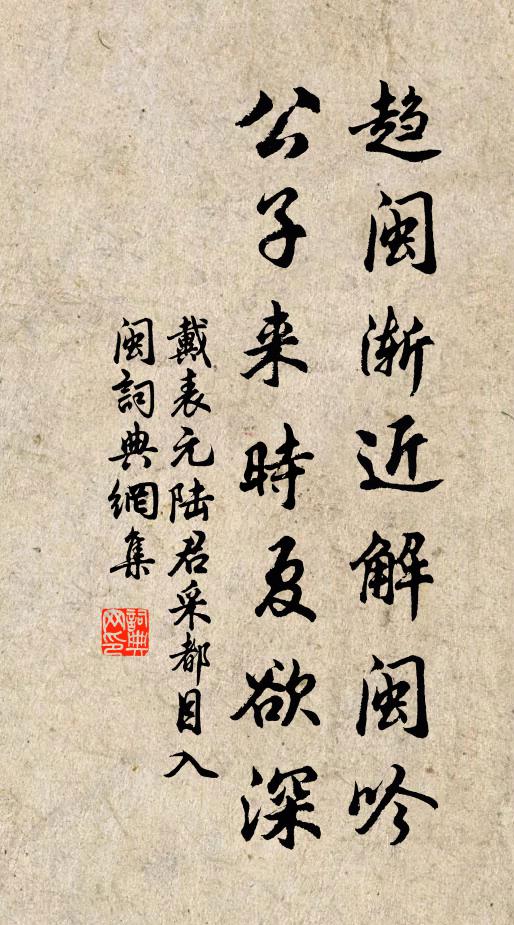 趋闽渐近解闽吟
公子来時夏欲深
戴表元陆君采都目入
闽詞典網集
詞典网印